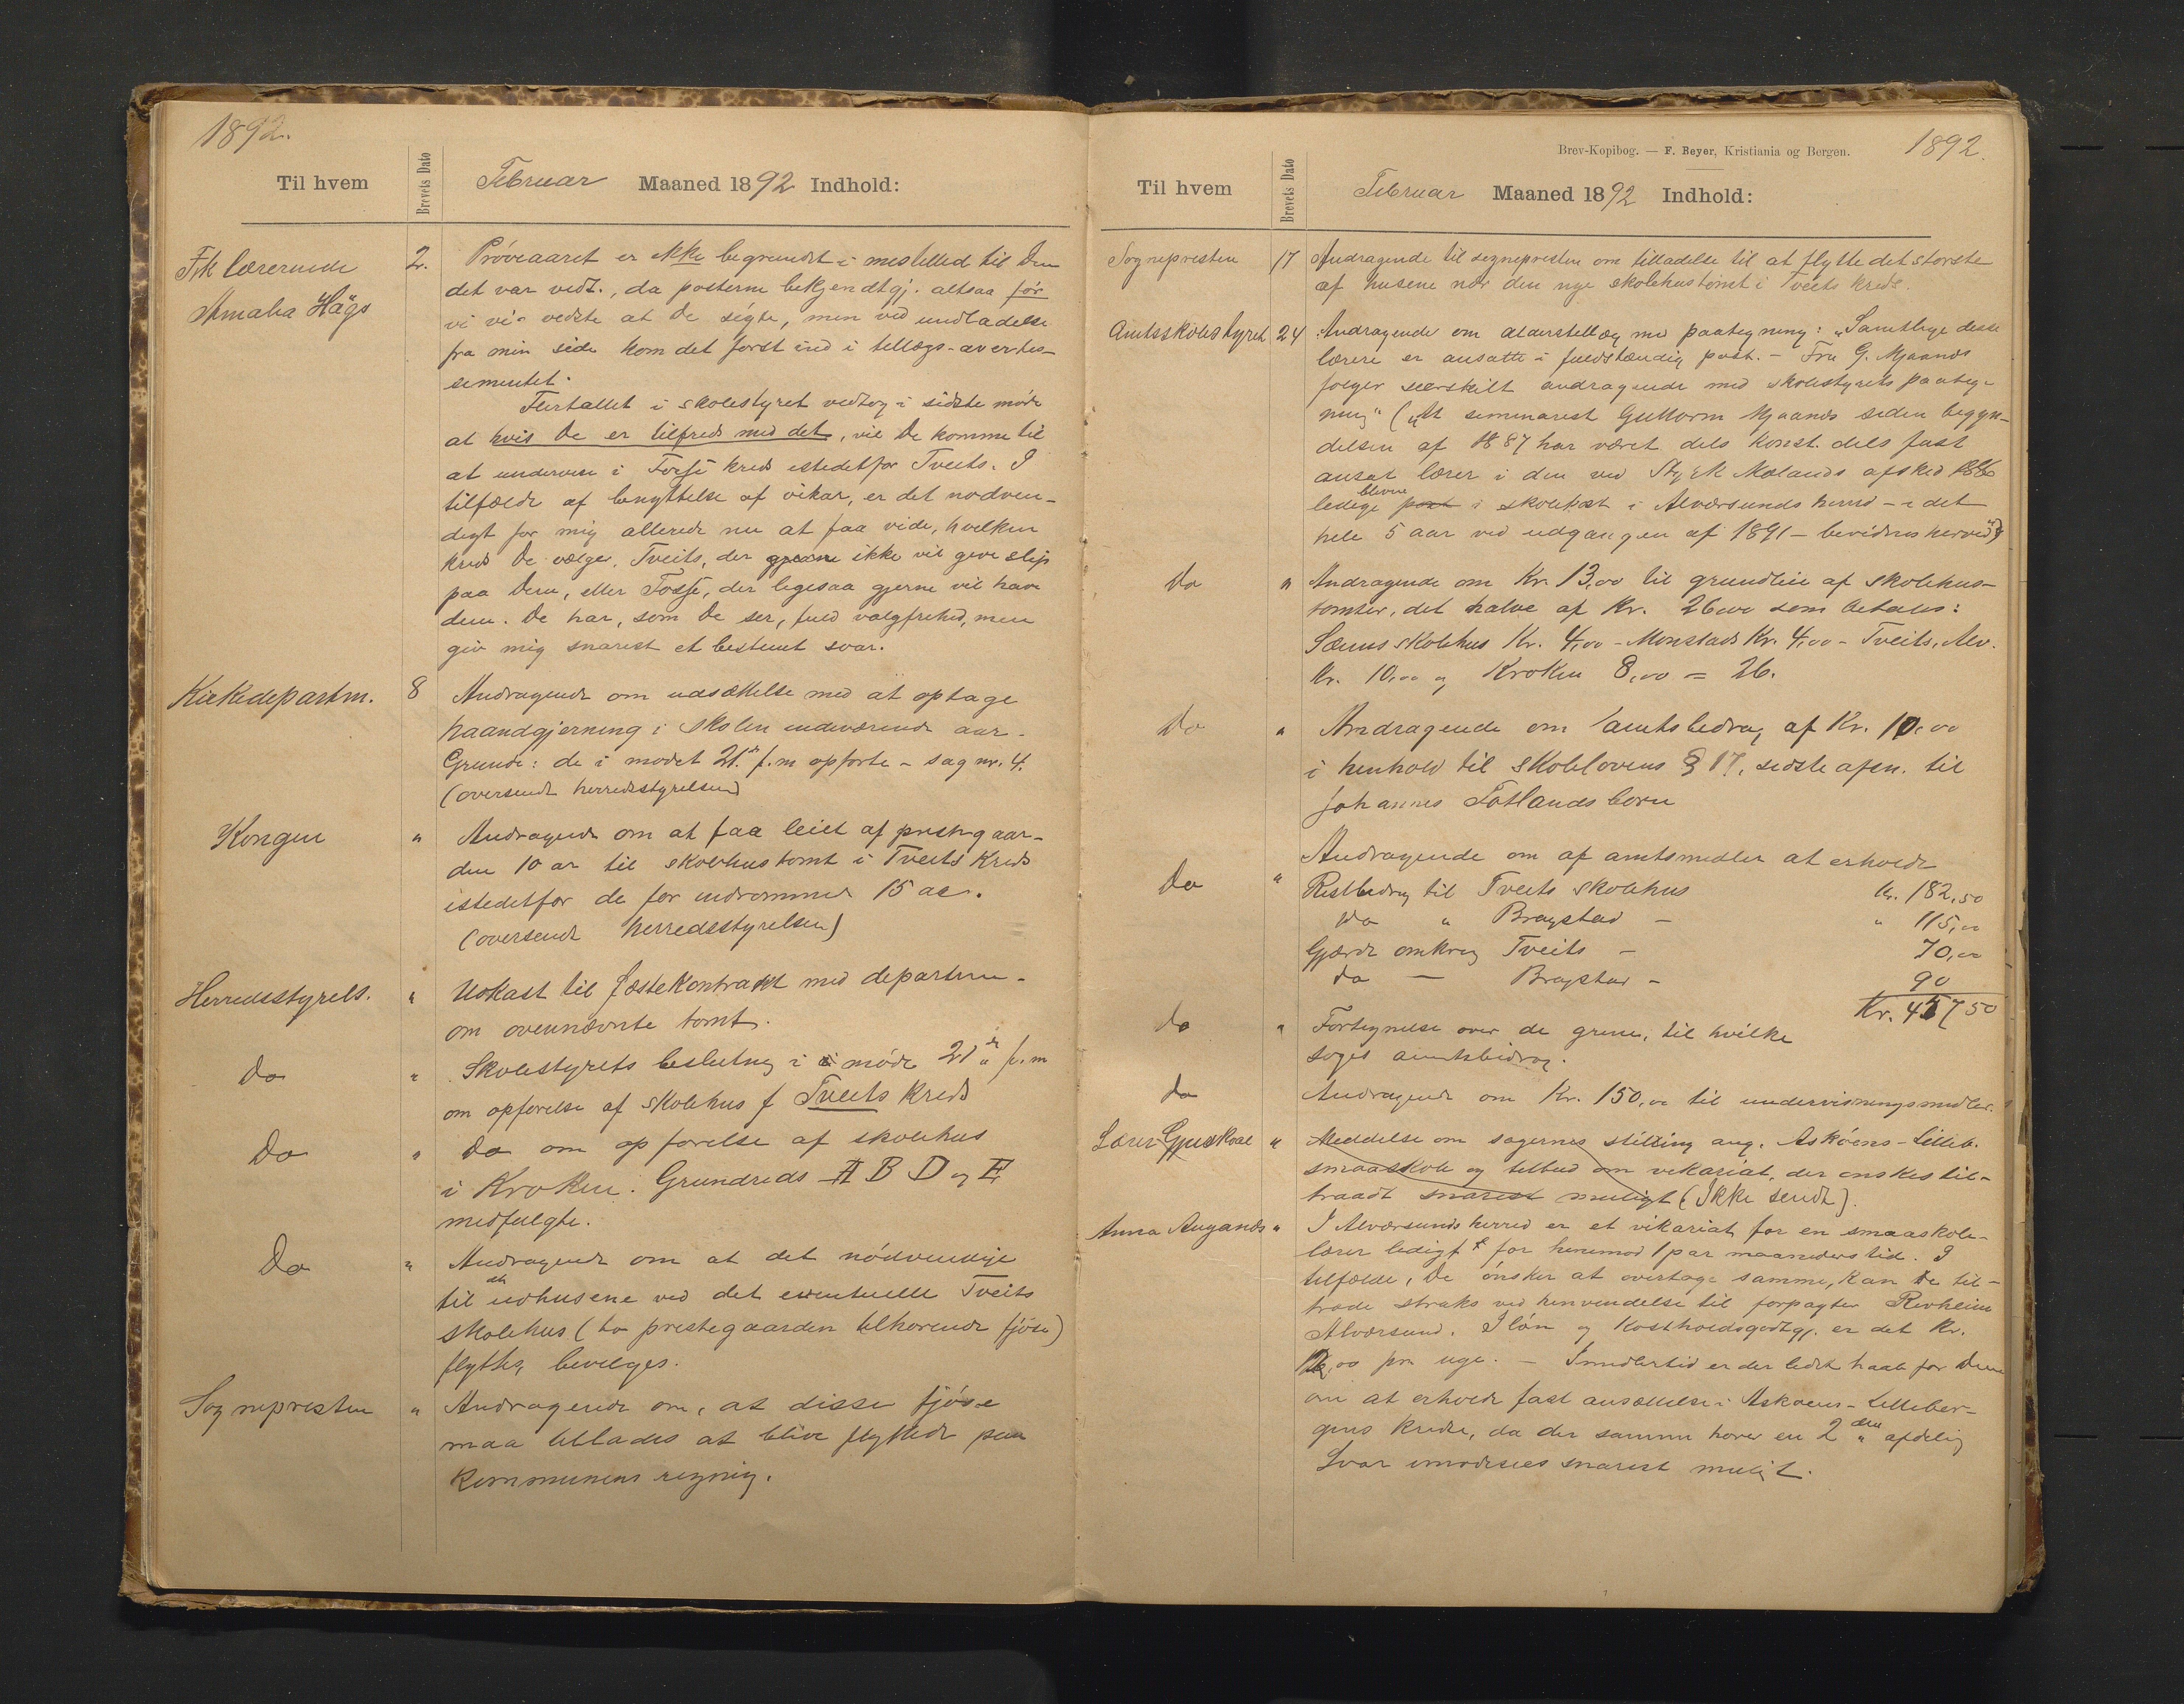 1892.
Til hvem
Brevets Dato
Februar Maaned 1892 Indhold:
Frk lærerinde
Amalia Hägs
2. Pröveaaret er ikke begrundet i mestillid til Dem
det var vedt., da posterne bekjendtgj. altsaa för
vi vi- vedste at De sögte, men ved undladelse
fra min side kom det först ind i tillægs-avertis-
sementet.
Flertallet i skolestyret vedtog i sidste möde
at hvis De er tilfreds med det, vil De komme til
at undervise i Fosse kreds istedetfor Tveits. I
tilfælde af benyttelse af vikar, er det nodven-
digt for mig allerede nu at faa vide, hvilken
kreds De vælger, Tveits, der gjerne ikke vil give slip
paa Dem, eller Fosse, der ligesaa gjerne vil have
dem. De har, som De ser, fuld valgfrihed, men
giv mig snarest et bestemt svar.
Kirkedepartm. 8 Andragende om udsættelse med at optage
haandgjerning i skolen indeværende aar.
Grunde: de i mødet 21. f.m opførte - sag nr. 4.
(oversendt herredsstyrelsen)
Kongen " Andragende om at faa leiet af prestegaar-
den 10 ar til skolehustomt i Tveits Kreds
istedetfor de før indrømmede 15 ar.
(oversendt herredsstyrelsen)
Herredsstyrels. " Udkast til fæstekontrakt med departem-
om ovennævnte tomt.
Do " Skolestyrets beslutning i möde 21 f.m
om opførelse af skolehus f Tveits Kreds
Do " Do om opførelse af skolehus
i Kroken. Grundreds A B D og E
medfulgte.
Do " Andragende om at det nödvendige
til udhusene ved det eventuelle Tveits
skolehus (to prestegaarden tilhørende fjöse)
flyttes, bevilges.
Sognepresten " Andragende om, at disse fjöse
maa tillades at blive flyttede paa
kommunens regning.
Brev-Kopibog. — F. Beyer, Kristiania og Bergen.
1892.
Til hvem
Brevets Dato
Februar Maaned 1892 Indhold:
Sognepresten 17 Andragende til sognepresten om tilladelse til at flytte det største
af husene nær den nye skolehustomt i Tveits kreds.
Amtsskolestyret 24 Andragende om alderstillæg med paategning: "Samtlige disse
lærere er ansatte i fuldstændig post. - Fra G. Mjaanes
følger særskilt andragende med skolestyrets paateg-
ning" ("At seminarist Guttorm Mjaanes siden begyn-
delsen af 1887 har været dels konst. dels fast
ansat lærer i den ved Styrk Mælands afsked 1886
ledige blevne post i skolekost i Alværsunds herred - i det
hele 5 aar ved udgangen af 1891 - bevidnes herved")
Do " Andragende om Kr. 13,00 til grundleie af skolehus-
tomter, det halve af Kr. 26,00 som betales:
Sæms skolehus Kr. 4,00 - Monstads Kr. 4,00 - Tveits, Alv.
Kr. 10,00 og Kroken 8,00 = 26.
Do " Andragende om amtsbidrag af Kr. 10,00
i henhold til skolelovens § 17, sidste afsn. til
Johannes Totlands børn
Do " Andragende om af amtsmidler at erholde
Restbidrag til Tveits skolehus Kr. 182,50
Do " Bragstad - " 115,00
Gjærde omkring Tveits - 70,00
Do — Bragstad - 90
Kr. 457 50
Do " Fortegnelse over de grene, til hvilke
søges amtsbidrag.
Do Andragende om Kr. 150,00 til undervisningsmidler.
Lærer Gjuskvae " Meddelse om sagernes stilling ang. Asköens-Lilleb.
smaaskole og tilbud om vikariat, der ønskes til-
traadt snarest muligt (Ikke sendt).
Anna " I Alværsunds herred er et vikariat for en smaaskole-
lærer ledigt for henimod 1 par maaneders tid. I
tilfælde, De önsker at overtage samme, kan De til-
træde straks ved henvendelse til forpagter Revheim
Alværsund. I lön og kostholdsgodtgj. er det Kr.
12,00 pr. uge. - Imidlertid er der lidt haab for Dem
om at erholde fast ansættelse i Askøens-Lilleber-
gens kredse, da der samme høver en 2 den afdeling
Svar imødesees snarest muligt.